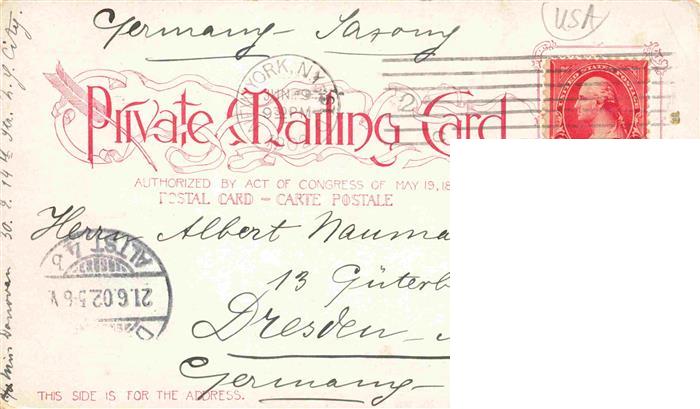 Germany - Saxony
USA
NEW YORK, N.Y.
JUN 9
9 PM
2
UNITED STATES POSTAGE
Private Mailing Card
AUTHORIZED BY ACT OF CONGRESS OF MAY 19, 18
POSTAL CARD – CARTE POSTALE
Herrn Albert Nauma
13 Güterb
Dresden -
Germany -
ALTST. 4 b
21.6.02.5-6 V.
THIS SIDE IS FOR THE ADDRESS.
Miss Donovan 30. E. 14th Str. N. Y. City.